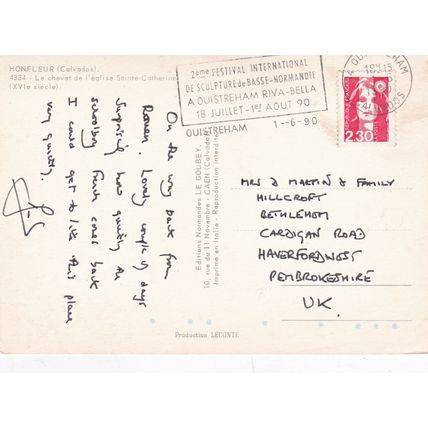 HONFLEUR (Calvados)
4334 - Le chevet de l'église Sainte-Catherine
(XVIe siècle)
2eme FESTIVAL INTERNATIONAL
DE SCULPTURE de BASSE-NORMANDIE
A OUISTREHAM RIVA-BELLA
18 JUILLET - 1er AOUT 90
OUISTREHAM 1--6-90
OUISTREHAM
2,30
On the way back from
Rouen. Lovely couple of days
Surprising how quickly the
schoolboy French comes back
I could get to like this place
very quickly.
Editions Normandes LE GOUBEY
10, rue du 11 Novembre - CAEN (Calvados)
Imprimé en Italie - Reproduction interdite
MRS D MARTIN & FAMILY
HILLCROFT
BETHLEHEM
CARDIGAN ROAD
HAVERFORDWEST
PEMBROKESHIRE
UK.
Production LECONTE